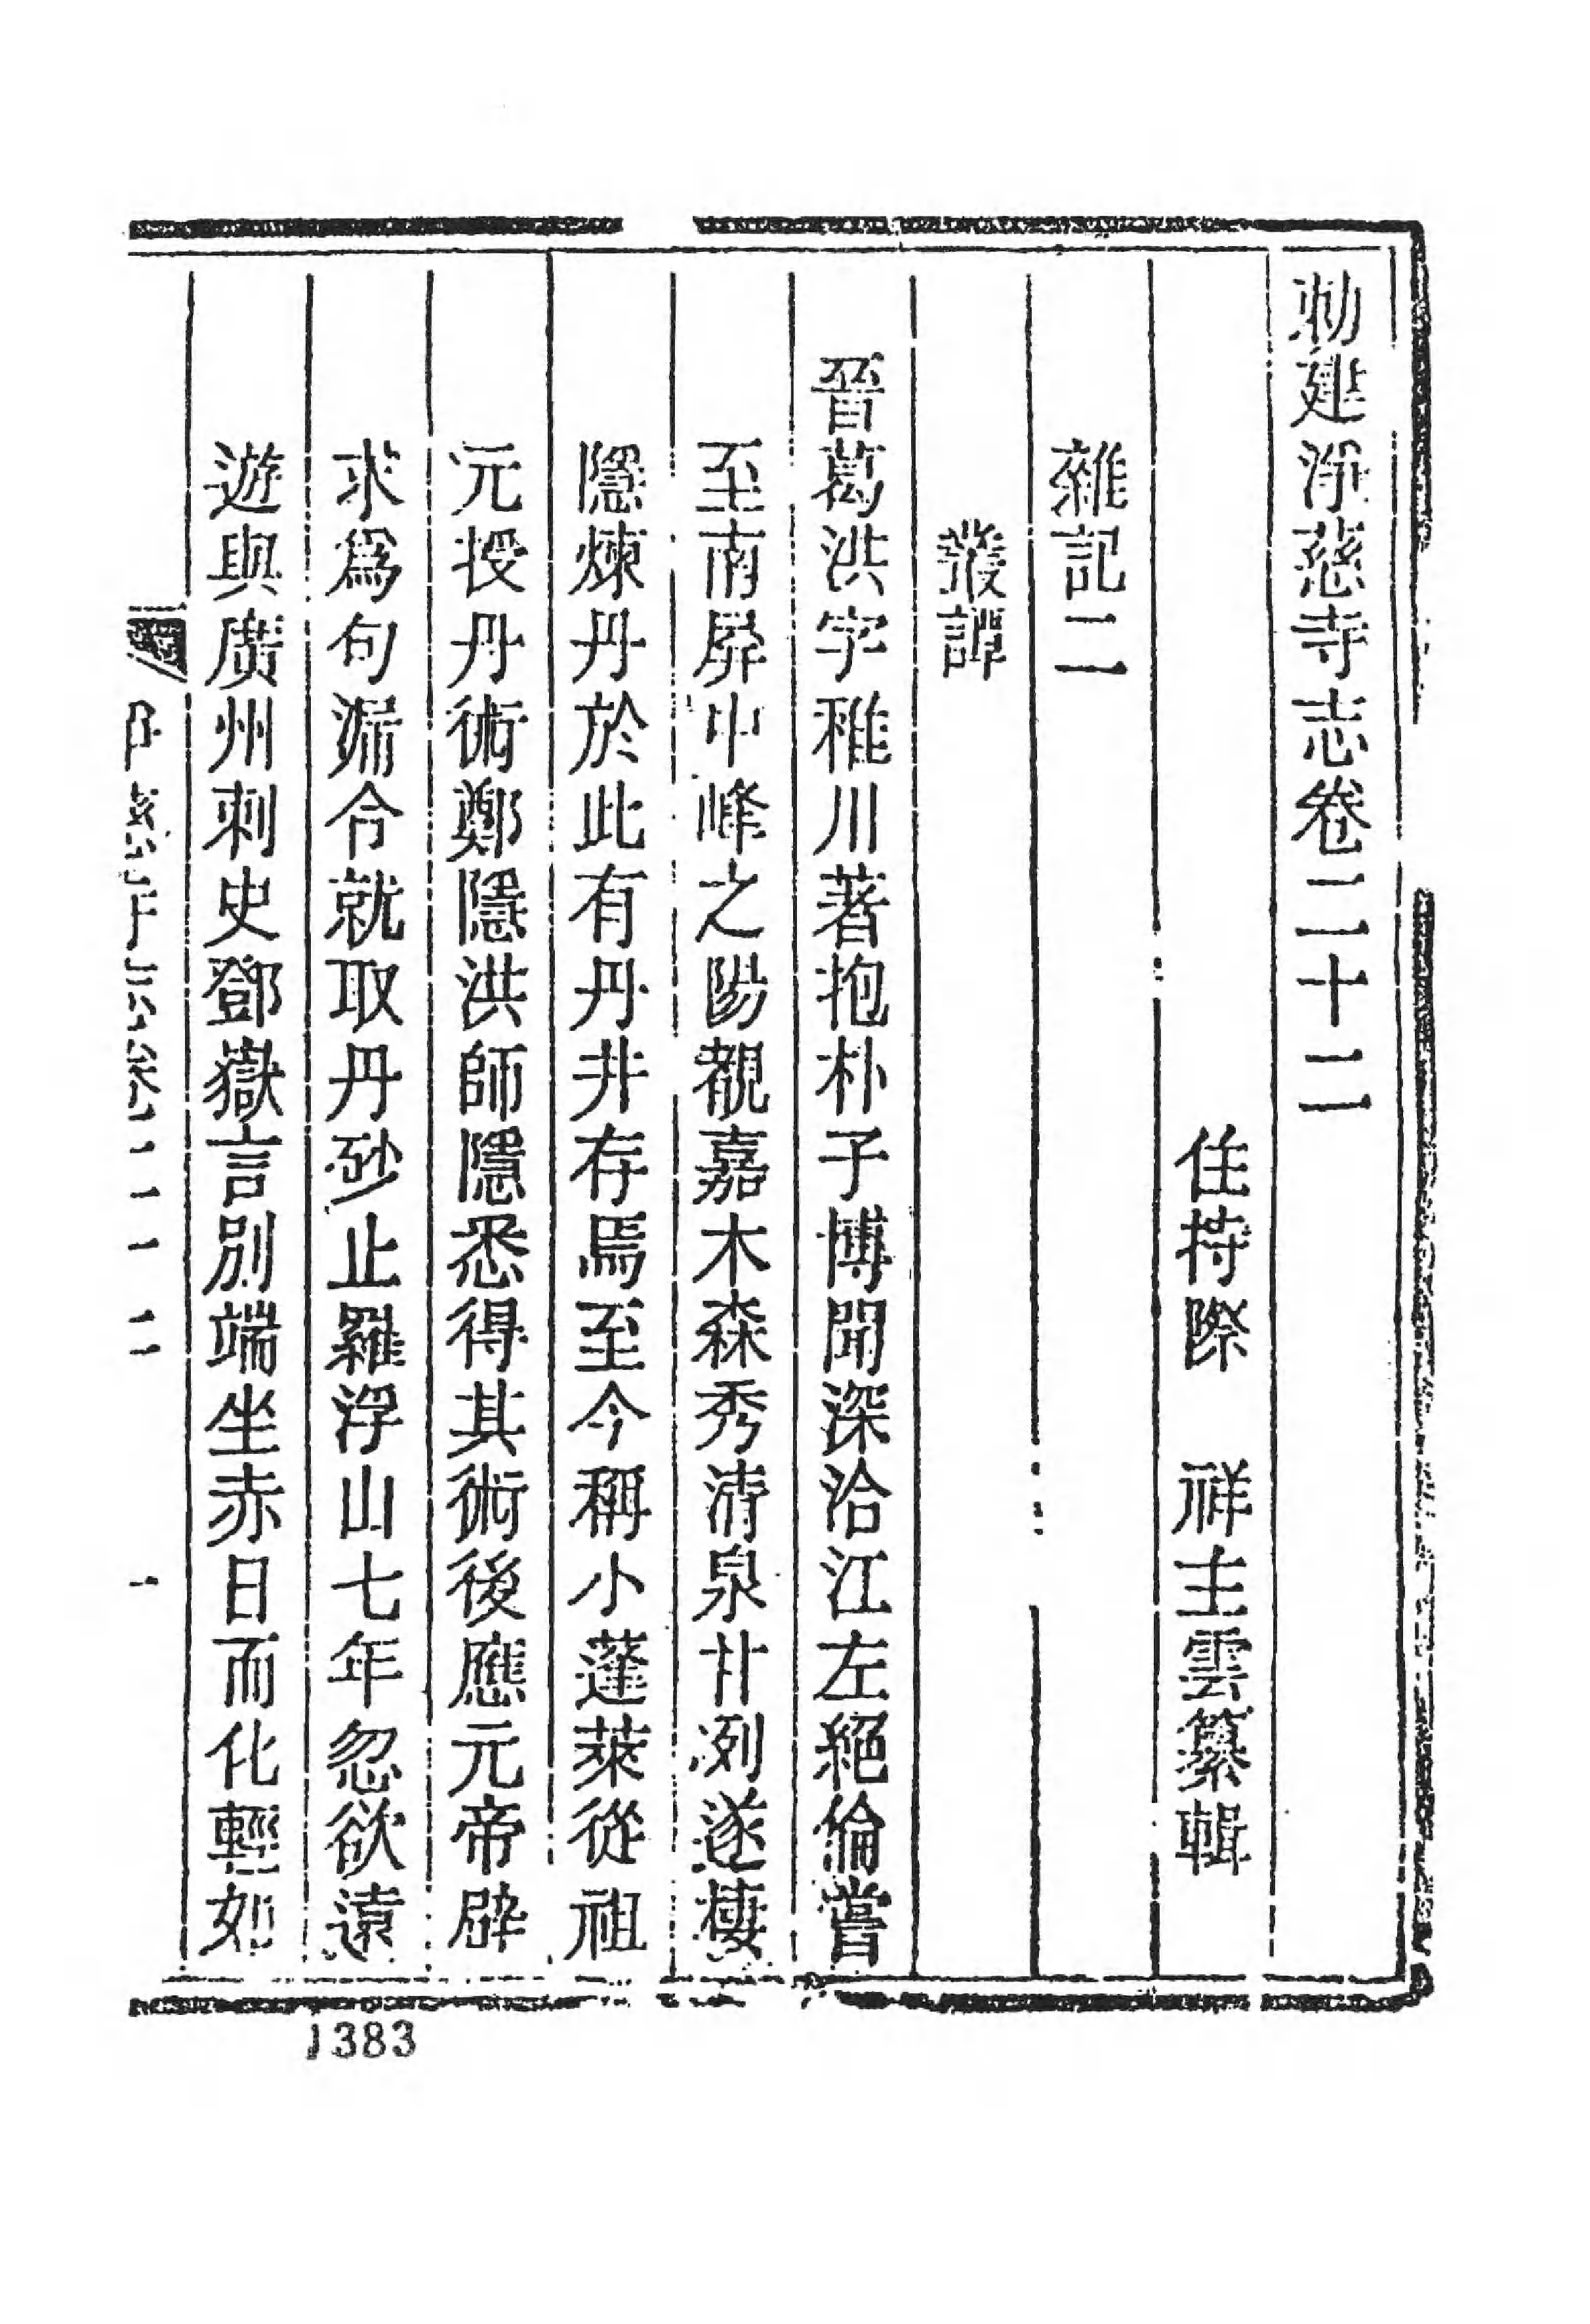 勅建淨慈寺志卷二十二
住持際　祥主雲纂輯
雜記二
叢譚
晉葛洪字稚川著抱朴子博聞深洽江左絕倫嘗
至南屛中峰之陽覩嘉木森秀清泉甘冽遂棲
隱煉丹於此有丹井存焉至今稱小蓬萊從祖
元授丹術鄭隱洪師隱悉得其術後應元帝辟
求爲句漏令就取丹砂止羅浮山七年忽欲遠
遊與廣州刺史鄧嶽言別端坐赤日而化輕如
1383